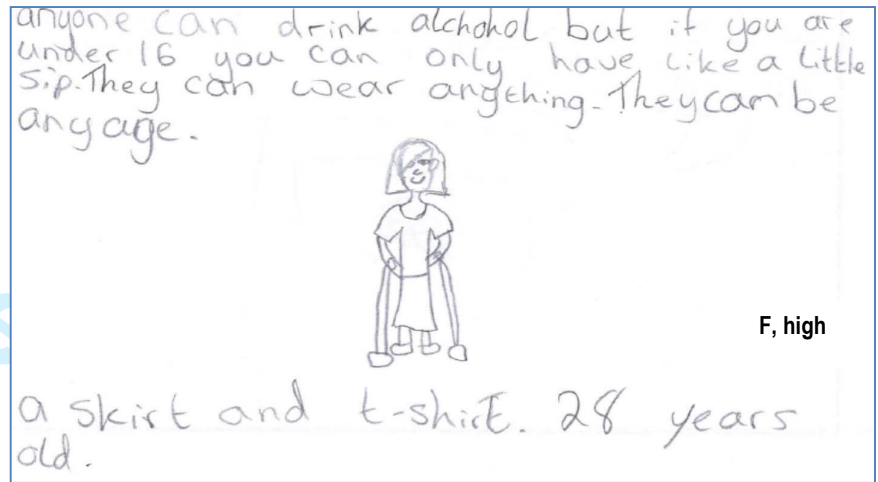 anyone can drink alchohol but if you are
under 16 you can only have like a little
sip. They can wear angthing. They can be
any age.
F, high
a skirt and t-shirt. 28 years
old.